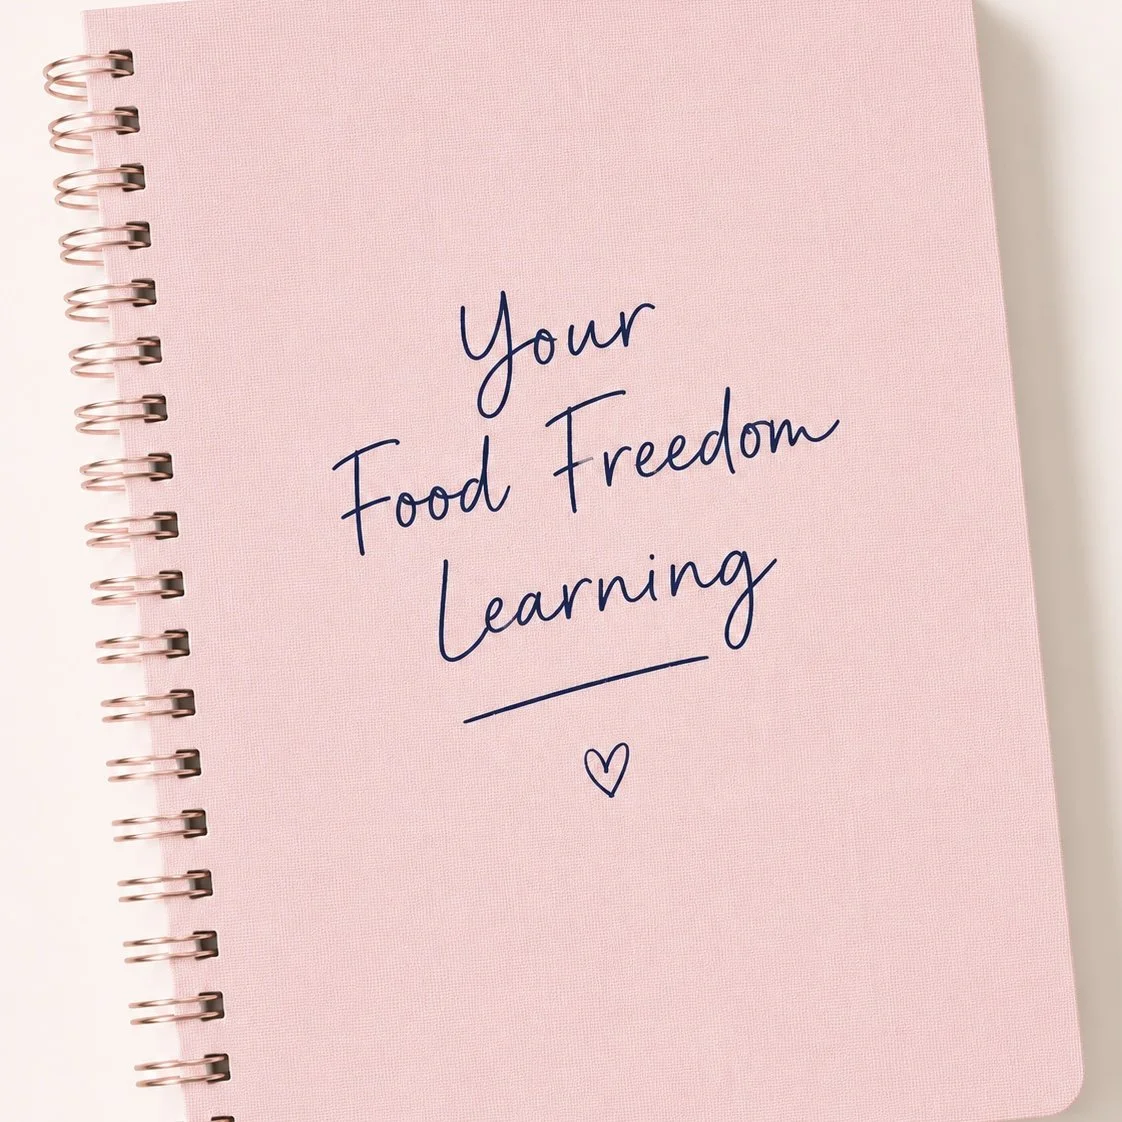 Your
Food Freedom
Learning